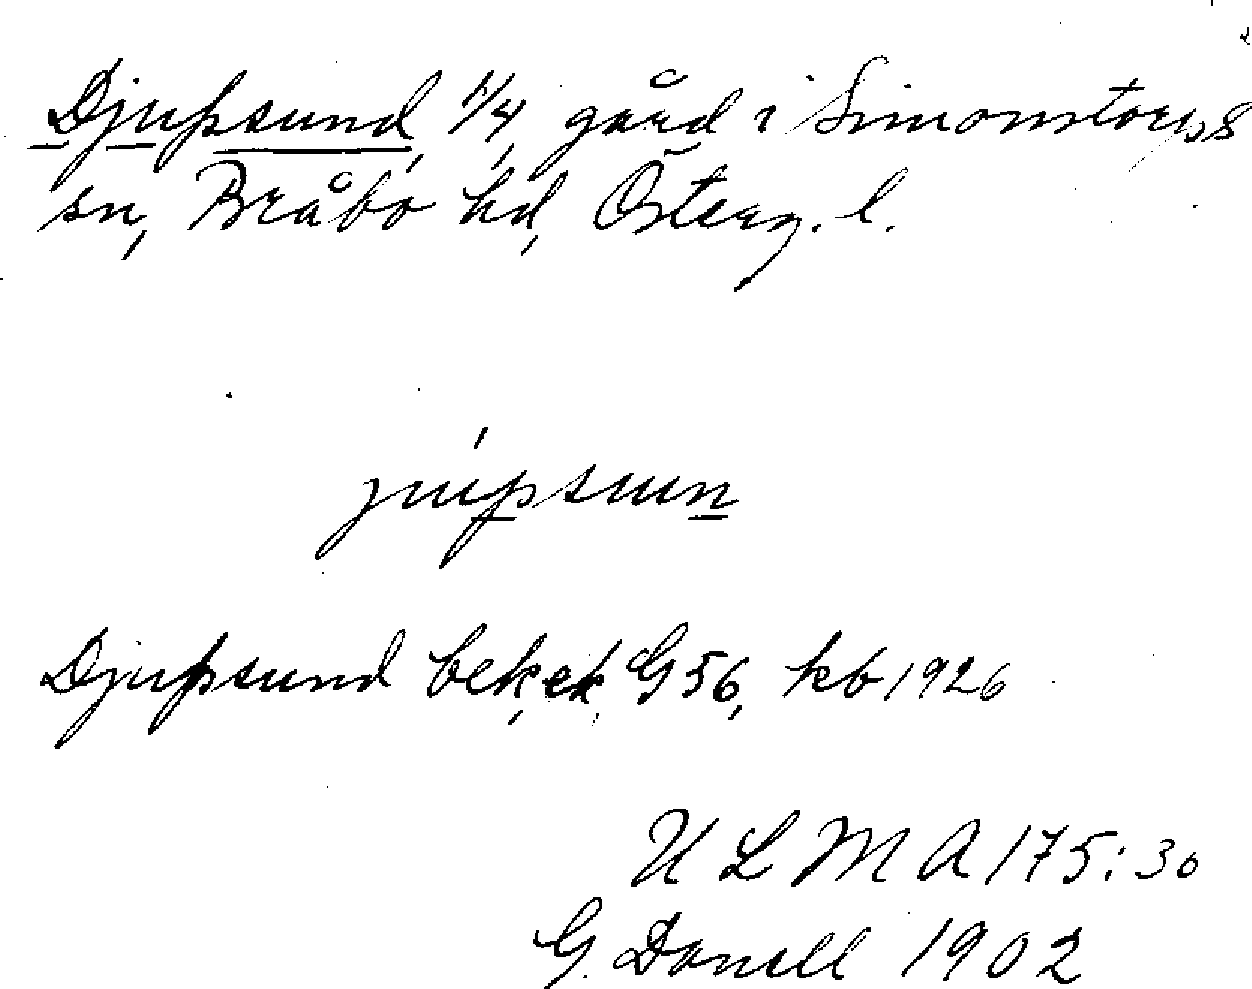 Djupsund, 1/4, gård i Simonstorps
sn, Bråbo hd, Österg. l.
júpsun
Djupsund bek, ek, G 56, kb 1926
U L M A 175:30
G. Danell 1902